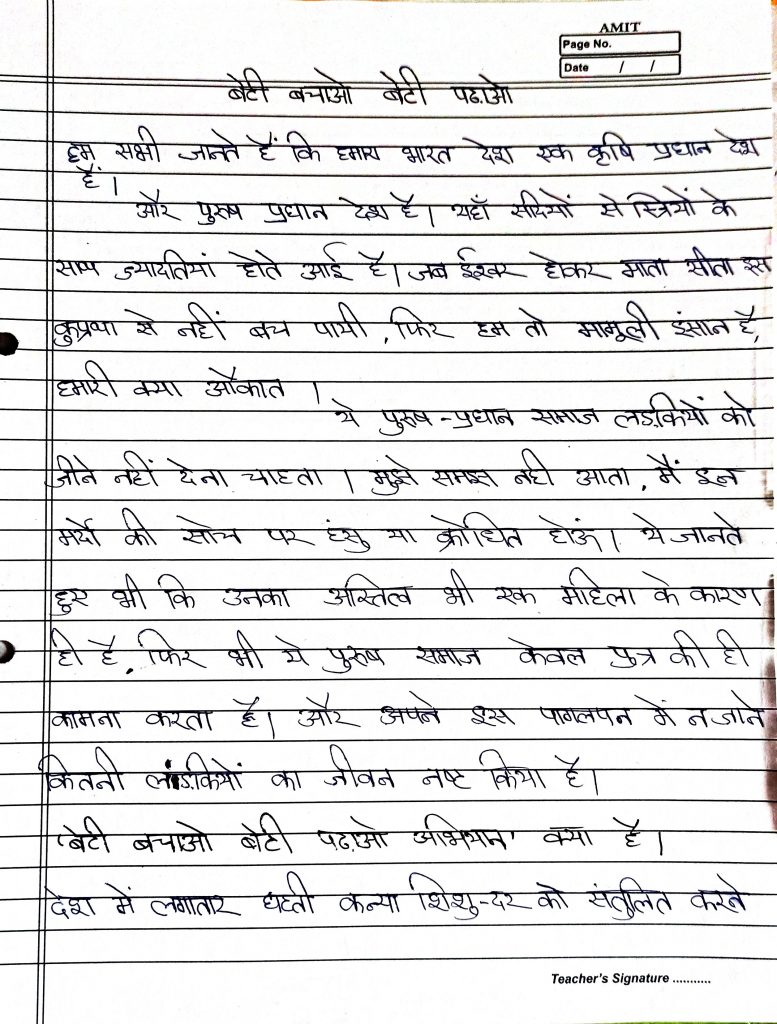 AMIT
Page No.
Date / /
बेटी बचाओ बेटी पढ़ाओ
हम सभी जानते हैं कि हमारा भारत देश एक कृषि प्रधान देश
है।
और पुरुष प्रधान देश है। यहाँ सदियों से स्त्रियों के
साथ ज्यादतियां होते आई है। जब ईश्वर होकर माता सीता इस
कुप्रथा से नहीं बच पायी, फिर हम तो मामूली इंसान है,
हमारी क्या औकात ।
ये पुरुष-प्रधान समाज लड़कियों को
जीने नहीं देना चाहता । मुझे समझ नही आता, मैं इन
मर्दो की सोच पर हंसु या क्रोधित होऊं। ये जानते
हुए भी कि उनका अस्तित्व भी एक महिला के कारण
ही है, फिर भी ये पुरुष समाज केवल पुत्र की ही
कामना करता है। और अपने इस पागलपन में न जाने
कितनी लड़कियों का जीवन नष्ट किया है।
'बेटी बचाओ बेटी पढ़ाओ अभियान' क्या है।
देश में लगातार घटती कन्या शिशु-दर को संतुलित करने
Teacher's Signature ...........